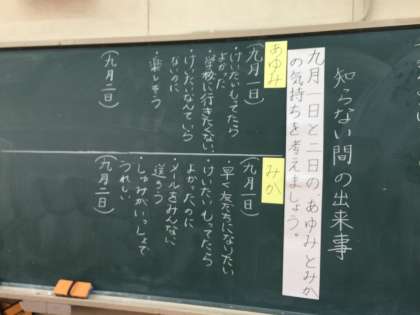 知らない間の出来事
九月一日と二日の、あゆみとみか
の気持ちを考えましょう。
あゆみ
(九月一日)
・けいたいもってたら
よかった
・学校に行きたくない
・けいたいなんている
ないのに
・楽しそう
(九月二日)
みか
(九月一日)
・早く友だちになりたい
・けいたいもってたら
よかったのに
・メールをみんなに
送ろう
・しゅみがいっしょで
うれしい
(九月二日)